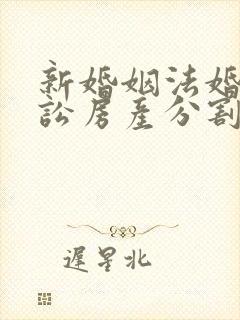 新婚姻法婚
訟房產分割
遲星北